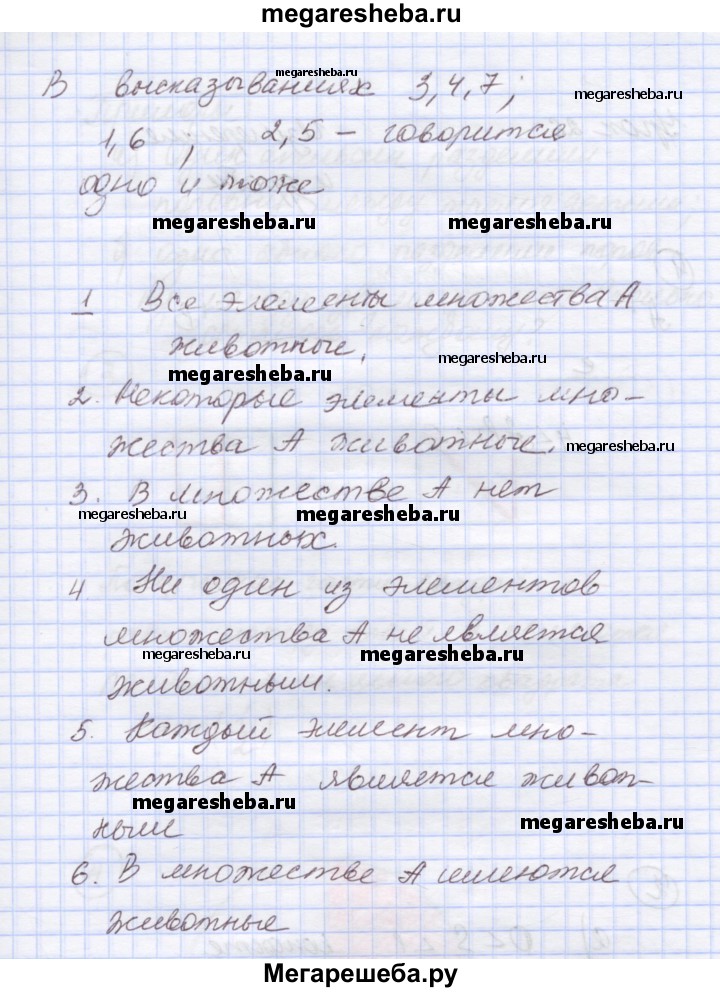 megaresheba.ru
В высказываниях 3,4,7;
megaresheba.ru
megaresheba.ru
1,6 ; 2,5 – говорится
одно и тоже
megaresheba.ru megaresheba.ru
1 Все элементы множества А
животные.
megaresheba.ru
megaresheba.ru
2. Некоторые элементы мно-
жества А животные.
megaresheba.ru
3. В множестве А нет
megaresheba.ru megaresheba.ru
животных.
4 Ни один из элементов
множества А не является
megaresheba.ru megaresheba.ru
животным.
5. Каждый элемент мно-
жества А является живот-
megaresheba.ru
ным
megaresheba.ru
6. В множестве А имеются
животные
Мегарешеба.ру